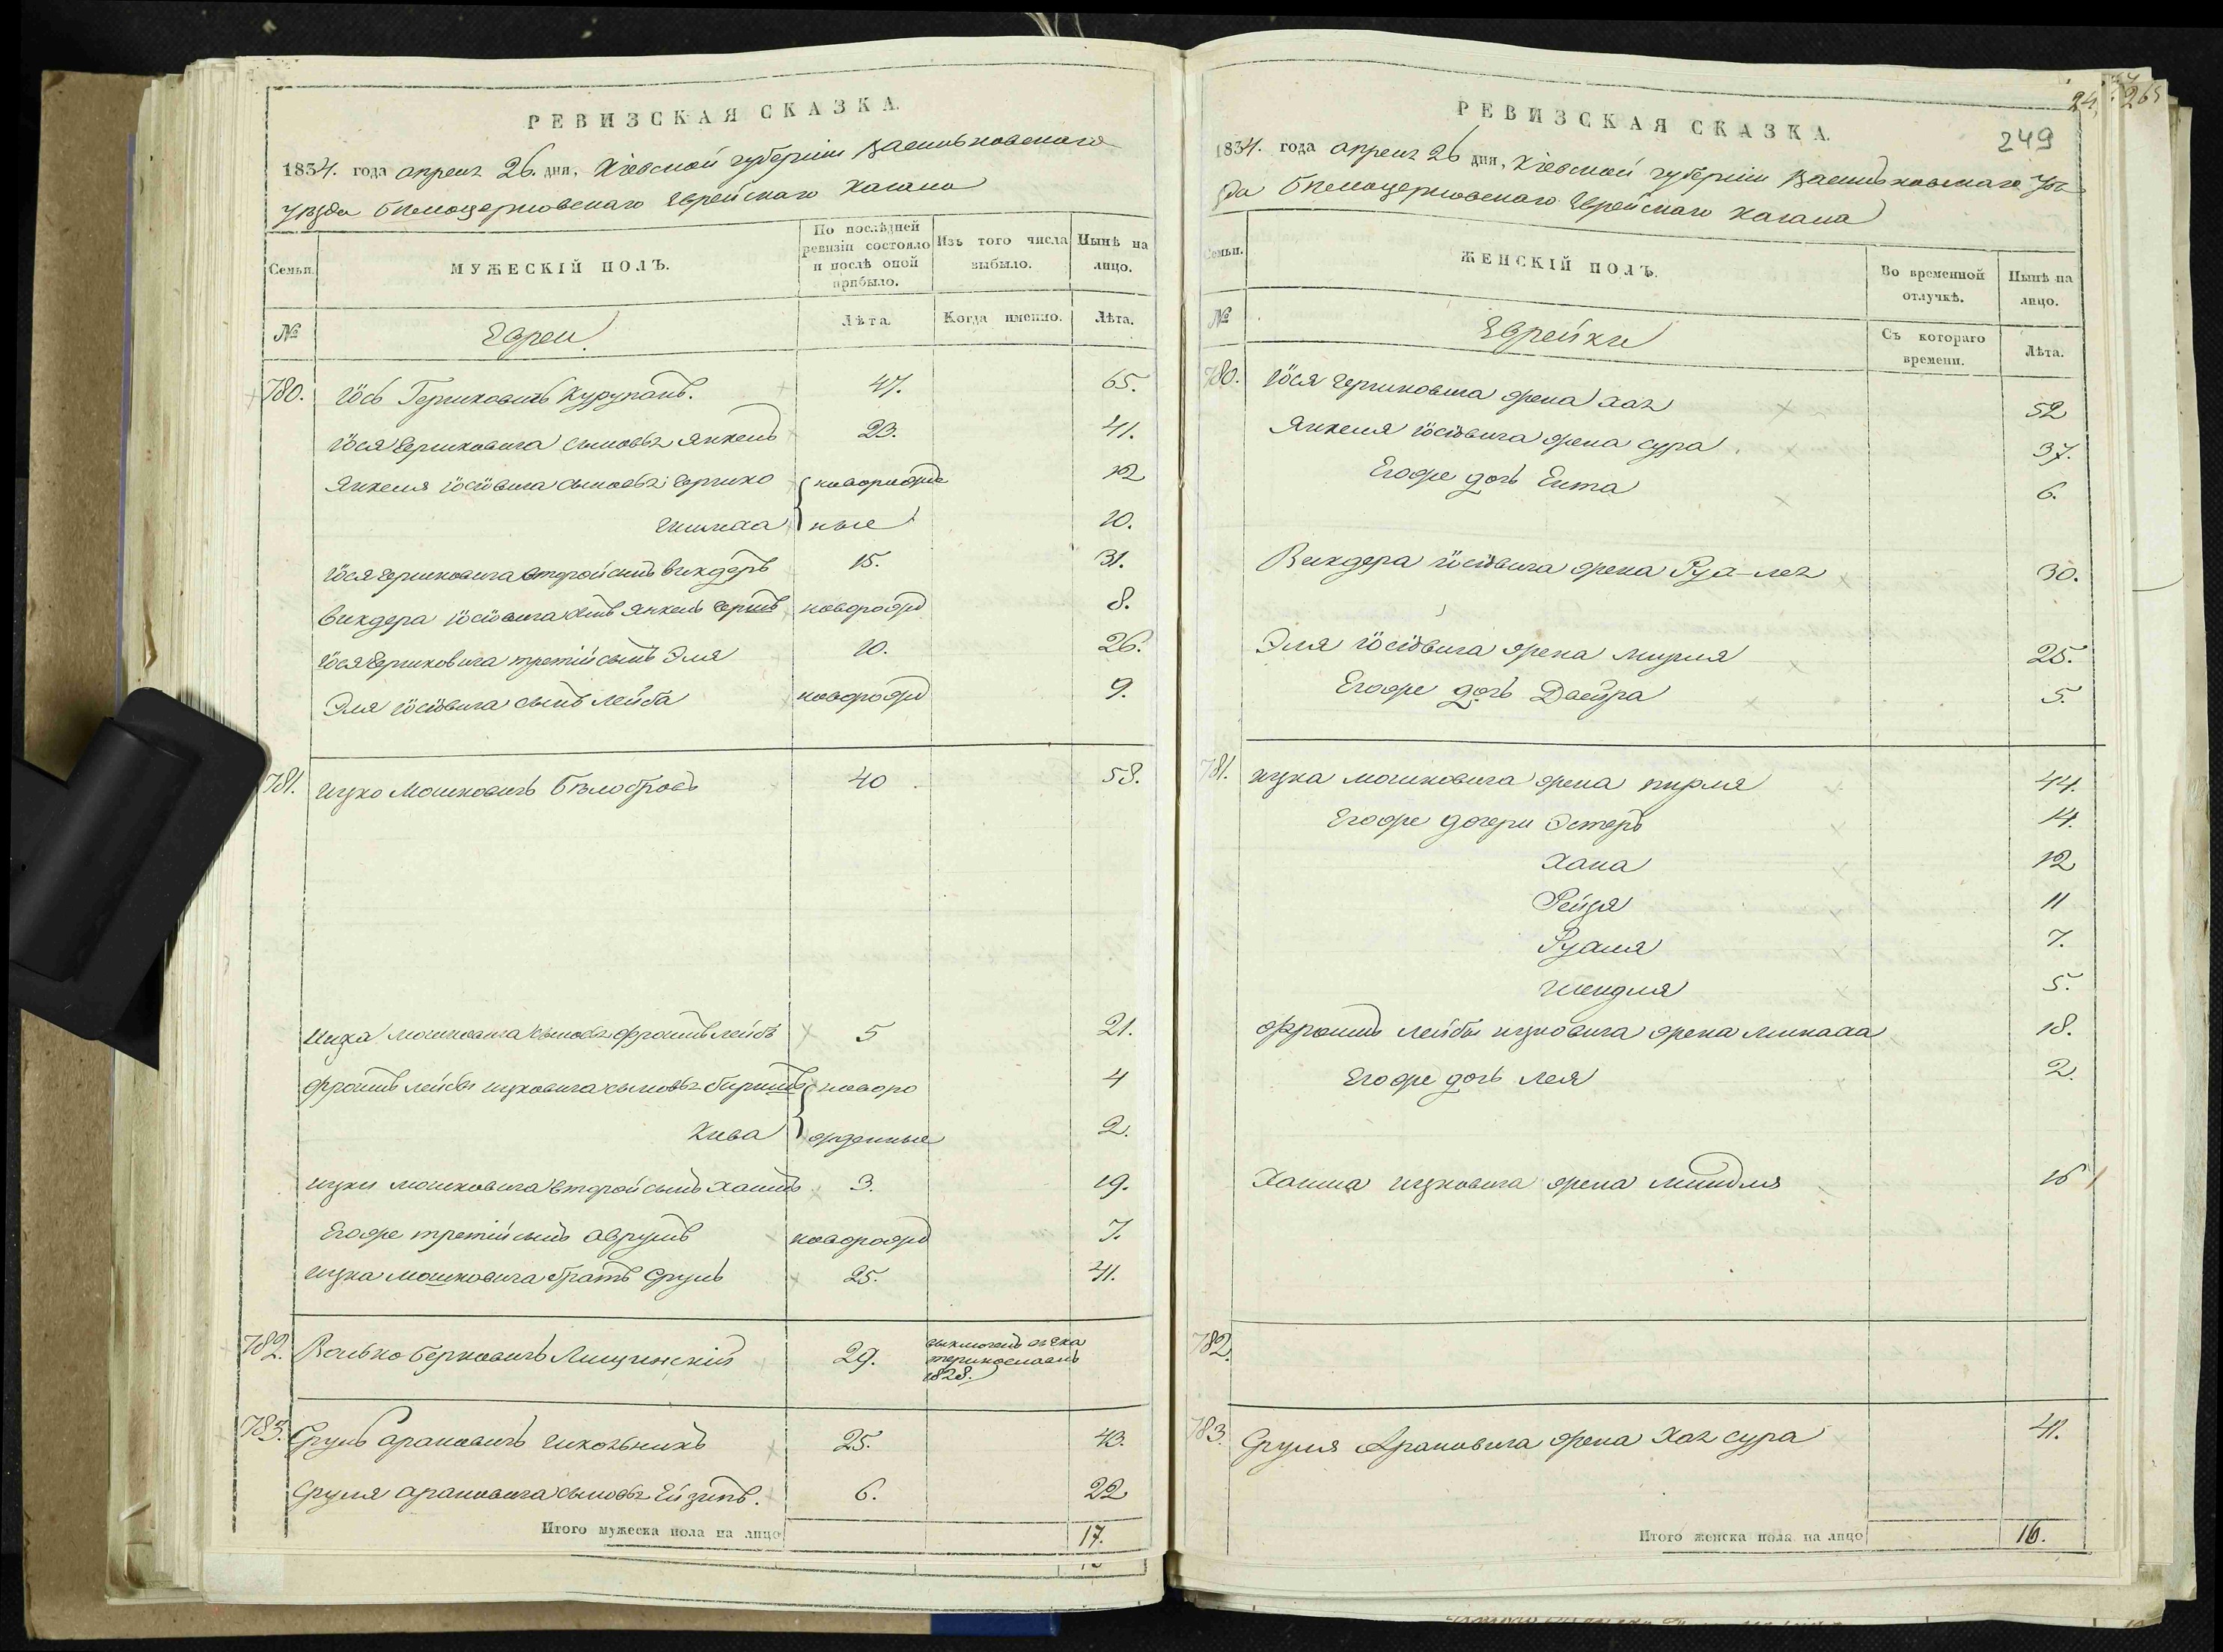 РЕВИЗСКАЯ СКАЗКА.
1834. года апреля 26. дня, Кіевской губерніи Васильковскаго
уѣзда Бѣлоцерковскаго Еврейскаго Кагала
Семьи.
МУЖЕСКІЙ ПОЛЪ.
По послѣдней ревизіи состояло и послѣ оной прибыло.
Изъ того числа выбыло.
Нынѣ на лицо.
№
Евреи
Лѣта.
Когда именно.
Лѣта.
780. Іось Гершковичъ 47. 65.
Іося Гершковича сыновья Янкель 23. 41.
Янкеля Іосіовича сыновья Гершко новорожде 12
ные 10.
Іося Гершковича второй сынъ Викдеръ 15. 31.
Викдера Іосіовича сынъ Янкель Гершъ новорожд 8.
Іося Гершковича третій сынъ Эля 10. 26.
Эля Іосіовича сынъ Лейба новорожд 9.
781. Ицко Мошковичъ Бѣлобровъ 40 58.
Ицка Мошковича сыновья Фроимъ Лейбъ 5 21.
Фроимъ Лейбы Ицковича сыновья новоро 4
Кива жденные 2.
Ицки Мошковича второй сынъ Хаимъ 3. 19.
Егоже третій сынъ Аврумъ новорожд 7.
Ицка Мошковича братъ Сруль 25. 41.
782. Волько Берковичъ Лищинскій 29.
выключенъ въ Ека
теринославль
1828.
783. Сруль Арановичъ Школьникъ 25. 43.
Сруля Арановича сыновья Ейзикъ. 6. 22
Итого мужеска пола на лицо 17.
265
249
РЕВИЗСКАЯ СКАЗКА.
1834. года апреля 26 дня, Кіевской губерніи Васильковскаго уѣ
зда Бѣлоцерковскаго Еврейскаго Кагала
Семьи.
ЖЕНСКІЙ ПОЛЪ.
Во временной отлучкѣ.
Нынѣ на лицо.
№
Еврейки
Съ котораго времени.
Лѣта.
780. Іося Гершковича жена Хая 52
Янкеля Іосіовича жена Сура 37.
Егоже дочь Ента 6.
Викдера Іосіовича жена 30.
Эля Іосіовича жена Мирля 25.
Егоже дочь Двейра 5.
781. Ицка Мошковича жена Пирля 44.
Егоже дочери Эстеръ 14.
Хана 12
Рейзя 11
Рухля 7.
Шендля 5.
Фроимъ Лейбы Ицковича жена 18.
Егоже дочь Лея 2.
Хаима Ицковича жена Миндля 16
782.
783. Сруля Арановича жена Хая Сура 41.
Итого женска пола на лицо 16.